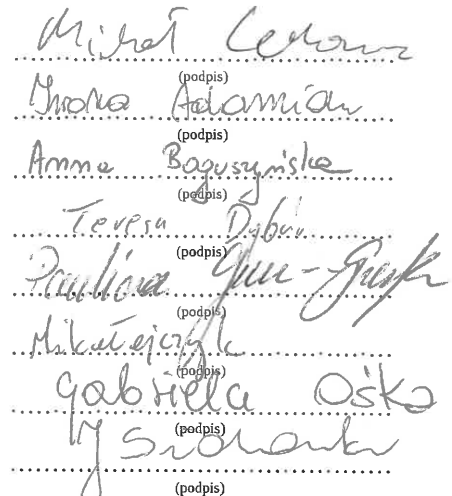 Michał
(podpis)
Iwona Adamiak
(podpis)
Anna Boguszyńska
(podpis)
Teresa
(podpis)
Paulina
(podpis)
Mikołajczyk
(podpis)
Gabriela Ośka
(podpis)
(podpis)